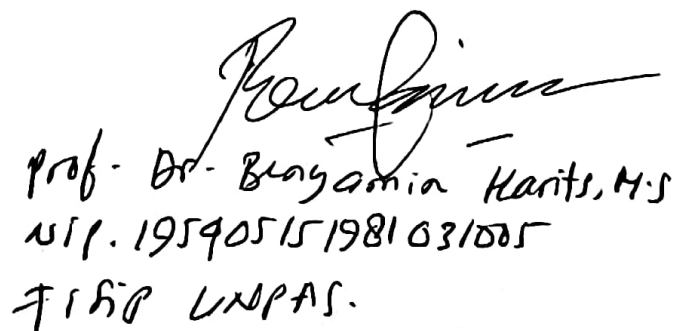 Prof. Dr. Benyamin Harits, M.S
NIP. 195905151981031005
FISIP UNPAS.